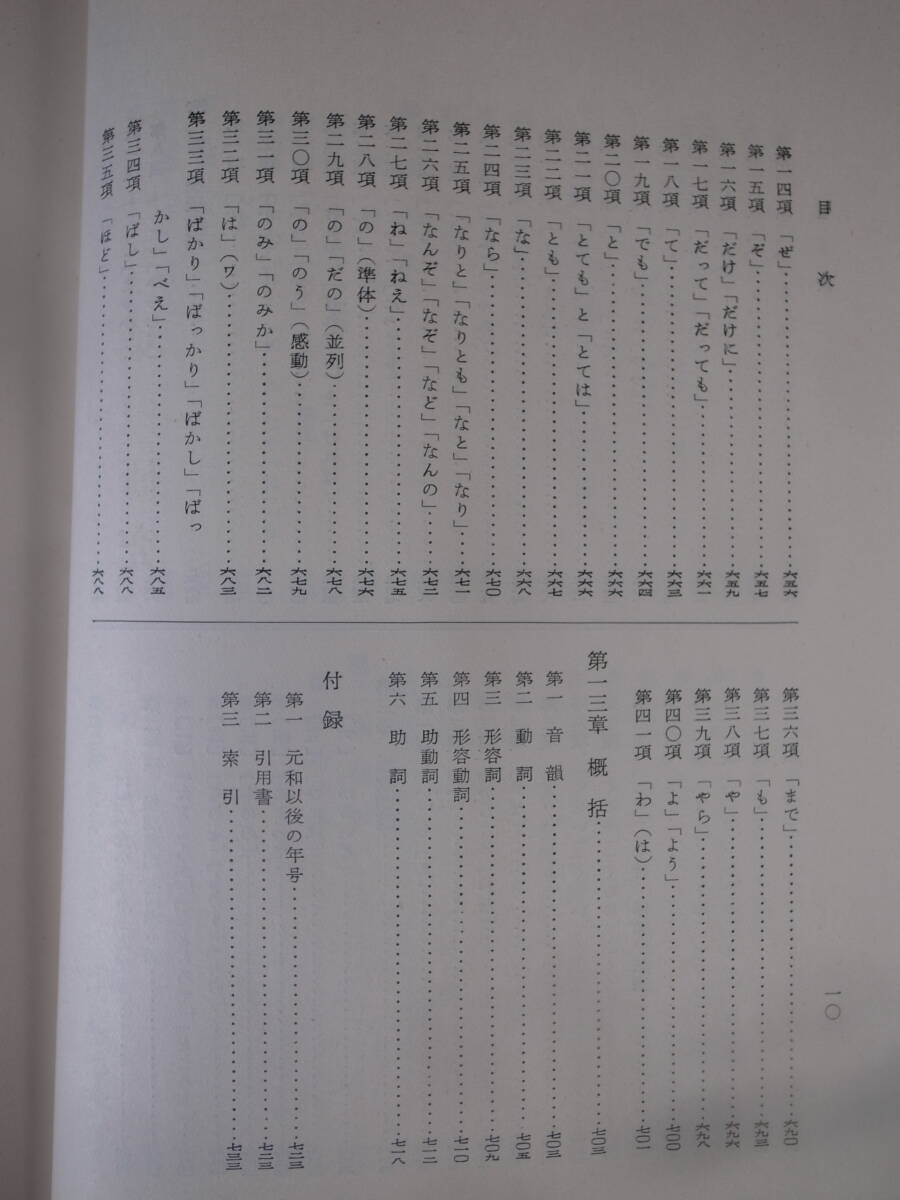 目次
第一四項 「ぜ」……六五六
第一五項 「ぞ」……六五七
第一六項 「だけ」「だけに」……六五九
第一七項 「だって」「だっても」……六六一
第一八項 「て」……六六三
第一九項 「でも」……六六四
第二〇項 「と」……六六六
第二一項 「とても」と「とては」……六六六
第二二項 「とも」……六六七
第二三項 「な」……六六八
第二四項 「なら」……六七〇
第二五項 「なりと」「なりとも」「なと」「なり」……六七一
第二六項 「なんぞ」「なぞ」「など」「なんの」……六七二
第二七項 「ね」「ねえ」……六七五
第二八項 「の」（準体）……六七六
第二九項 「の」「だの」（並列）……六七八
第三〇項 「の」「のう」（感動）……六七九
第三一項 「のみ」「のみか」……六八二
第三二項 「は」（ワ）……六八三
第三三項 「ばかり」「ばっかり」「ばかし」「ばっ
かし」「べえ」……六八五
第三四項 「ばし」……六八八
第三五項 「ほど」……六八八
第三六項 「まで」……六九〇
第三七項 「も」……六九三
第三八項 「や」……六九六
第三九項 「やら」……六九八
第四〇項 「よ」「よう」……七〇〇
第四一項 「わ」（は）……七〇一
第一三章 概括……七〇三
第一 音韻……七〇三
第二 動詞……七〇五
第三 形容詞……七〇九
第四 形容動詞……七一〇
第五 助動詞……七一二
第六 助詞……七一八
付録
第一 元和以後の年号……七二三
第二 引用書……七二三
第三 索引……七三三
一〇